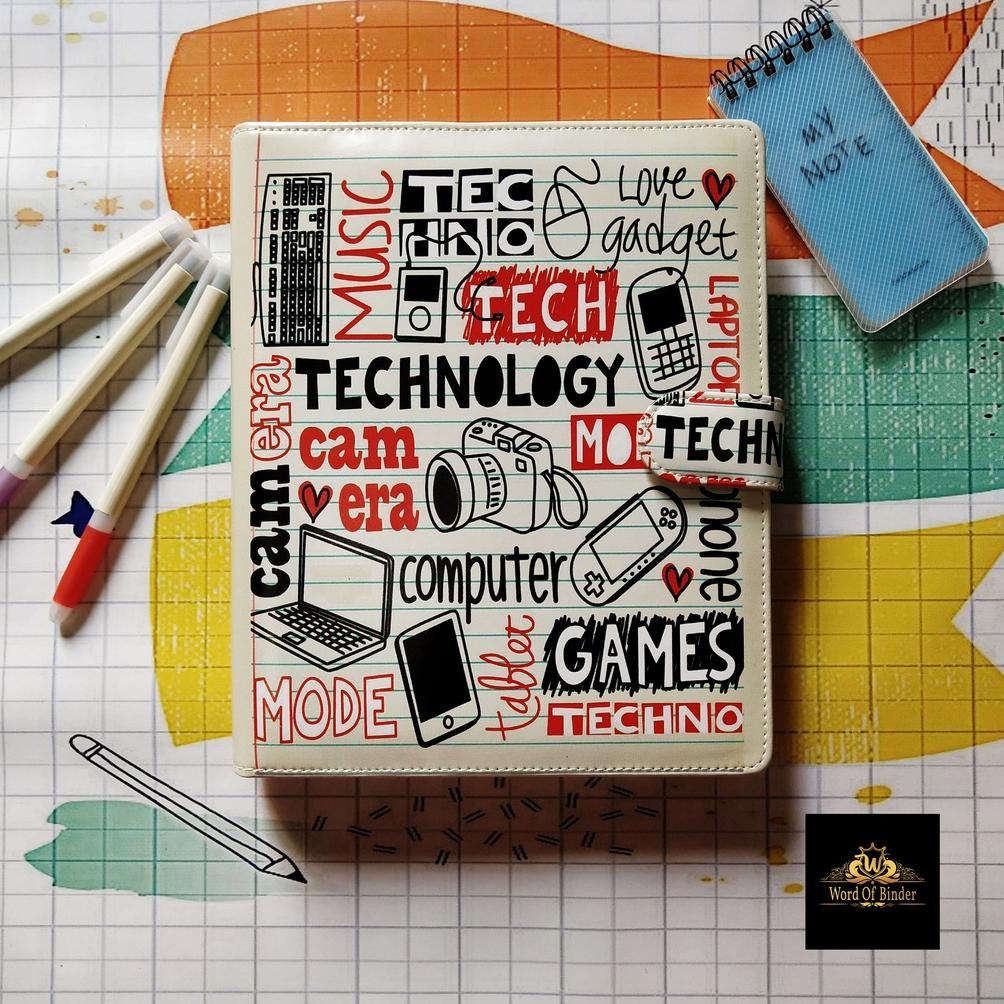 MY
NOTE
MUSIC
TEC
HNO
Love
gadget
TECH
LAPTOP
TECHNOLOGY
camera
cam
era
MO
TECHN
phone
computer
tablet
GAMES
MODE
TECHNO
W
Word Of Binder